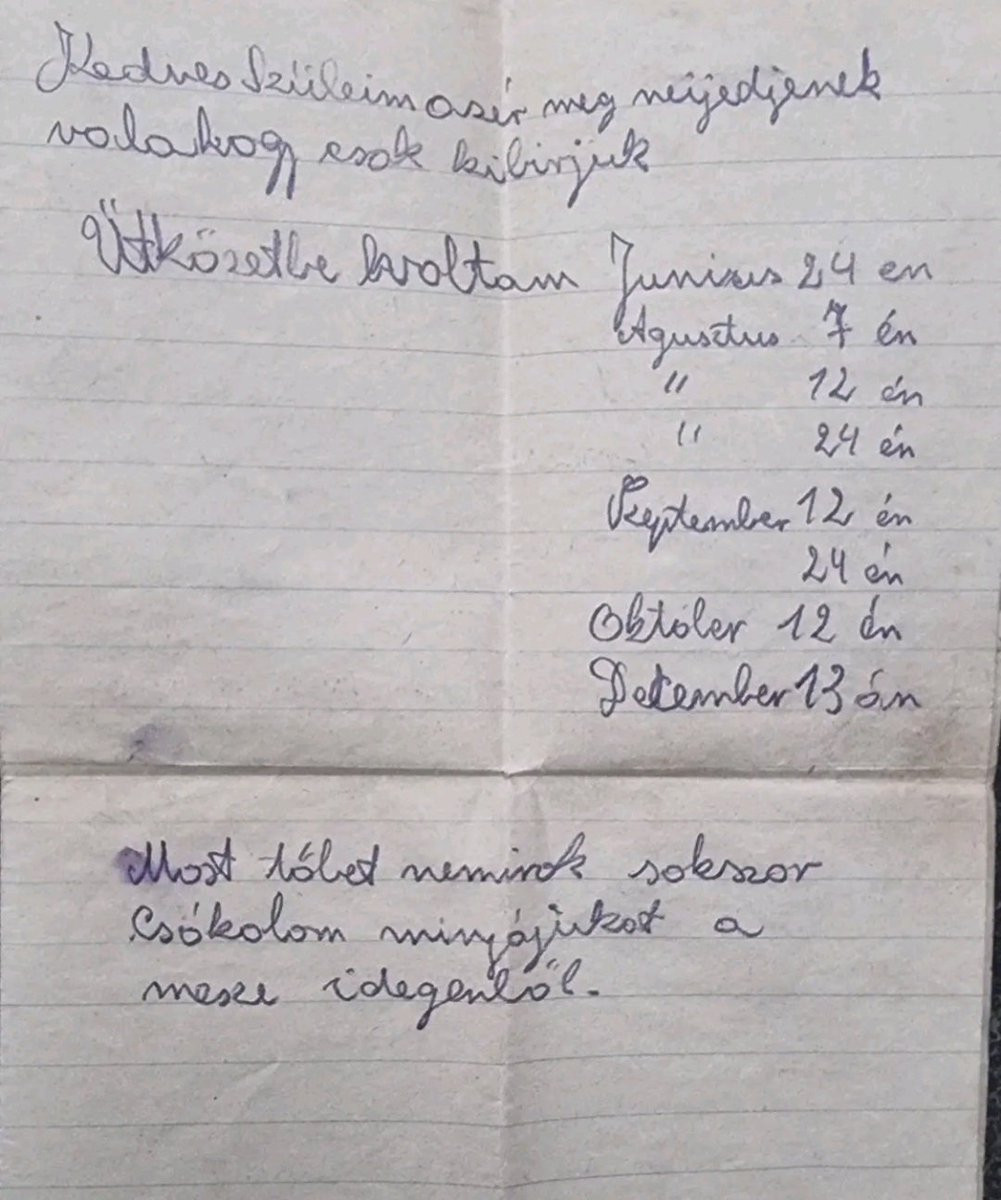 Kedves Szüleim asér meg neijedjenek
valahogy csak kibirjuk
Ütközetbe kvoltam Junius 24 en
Agusztus 7 én
" 12 én
" 24 én
Szeptember 12 én
24 én
Októler 12 én
December 13 án
Most tőbet nemirok sokszor
Csókolom minyájukat a
mesze idegenből.